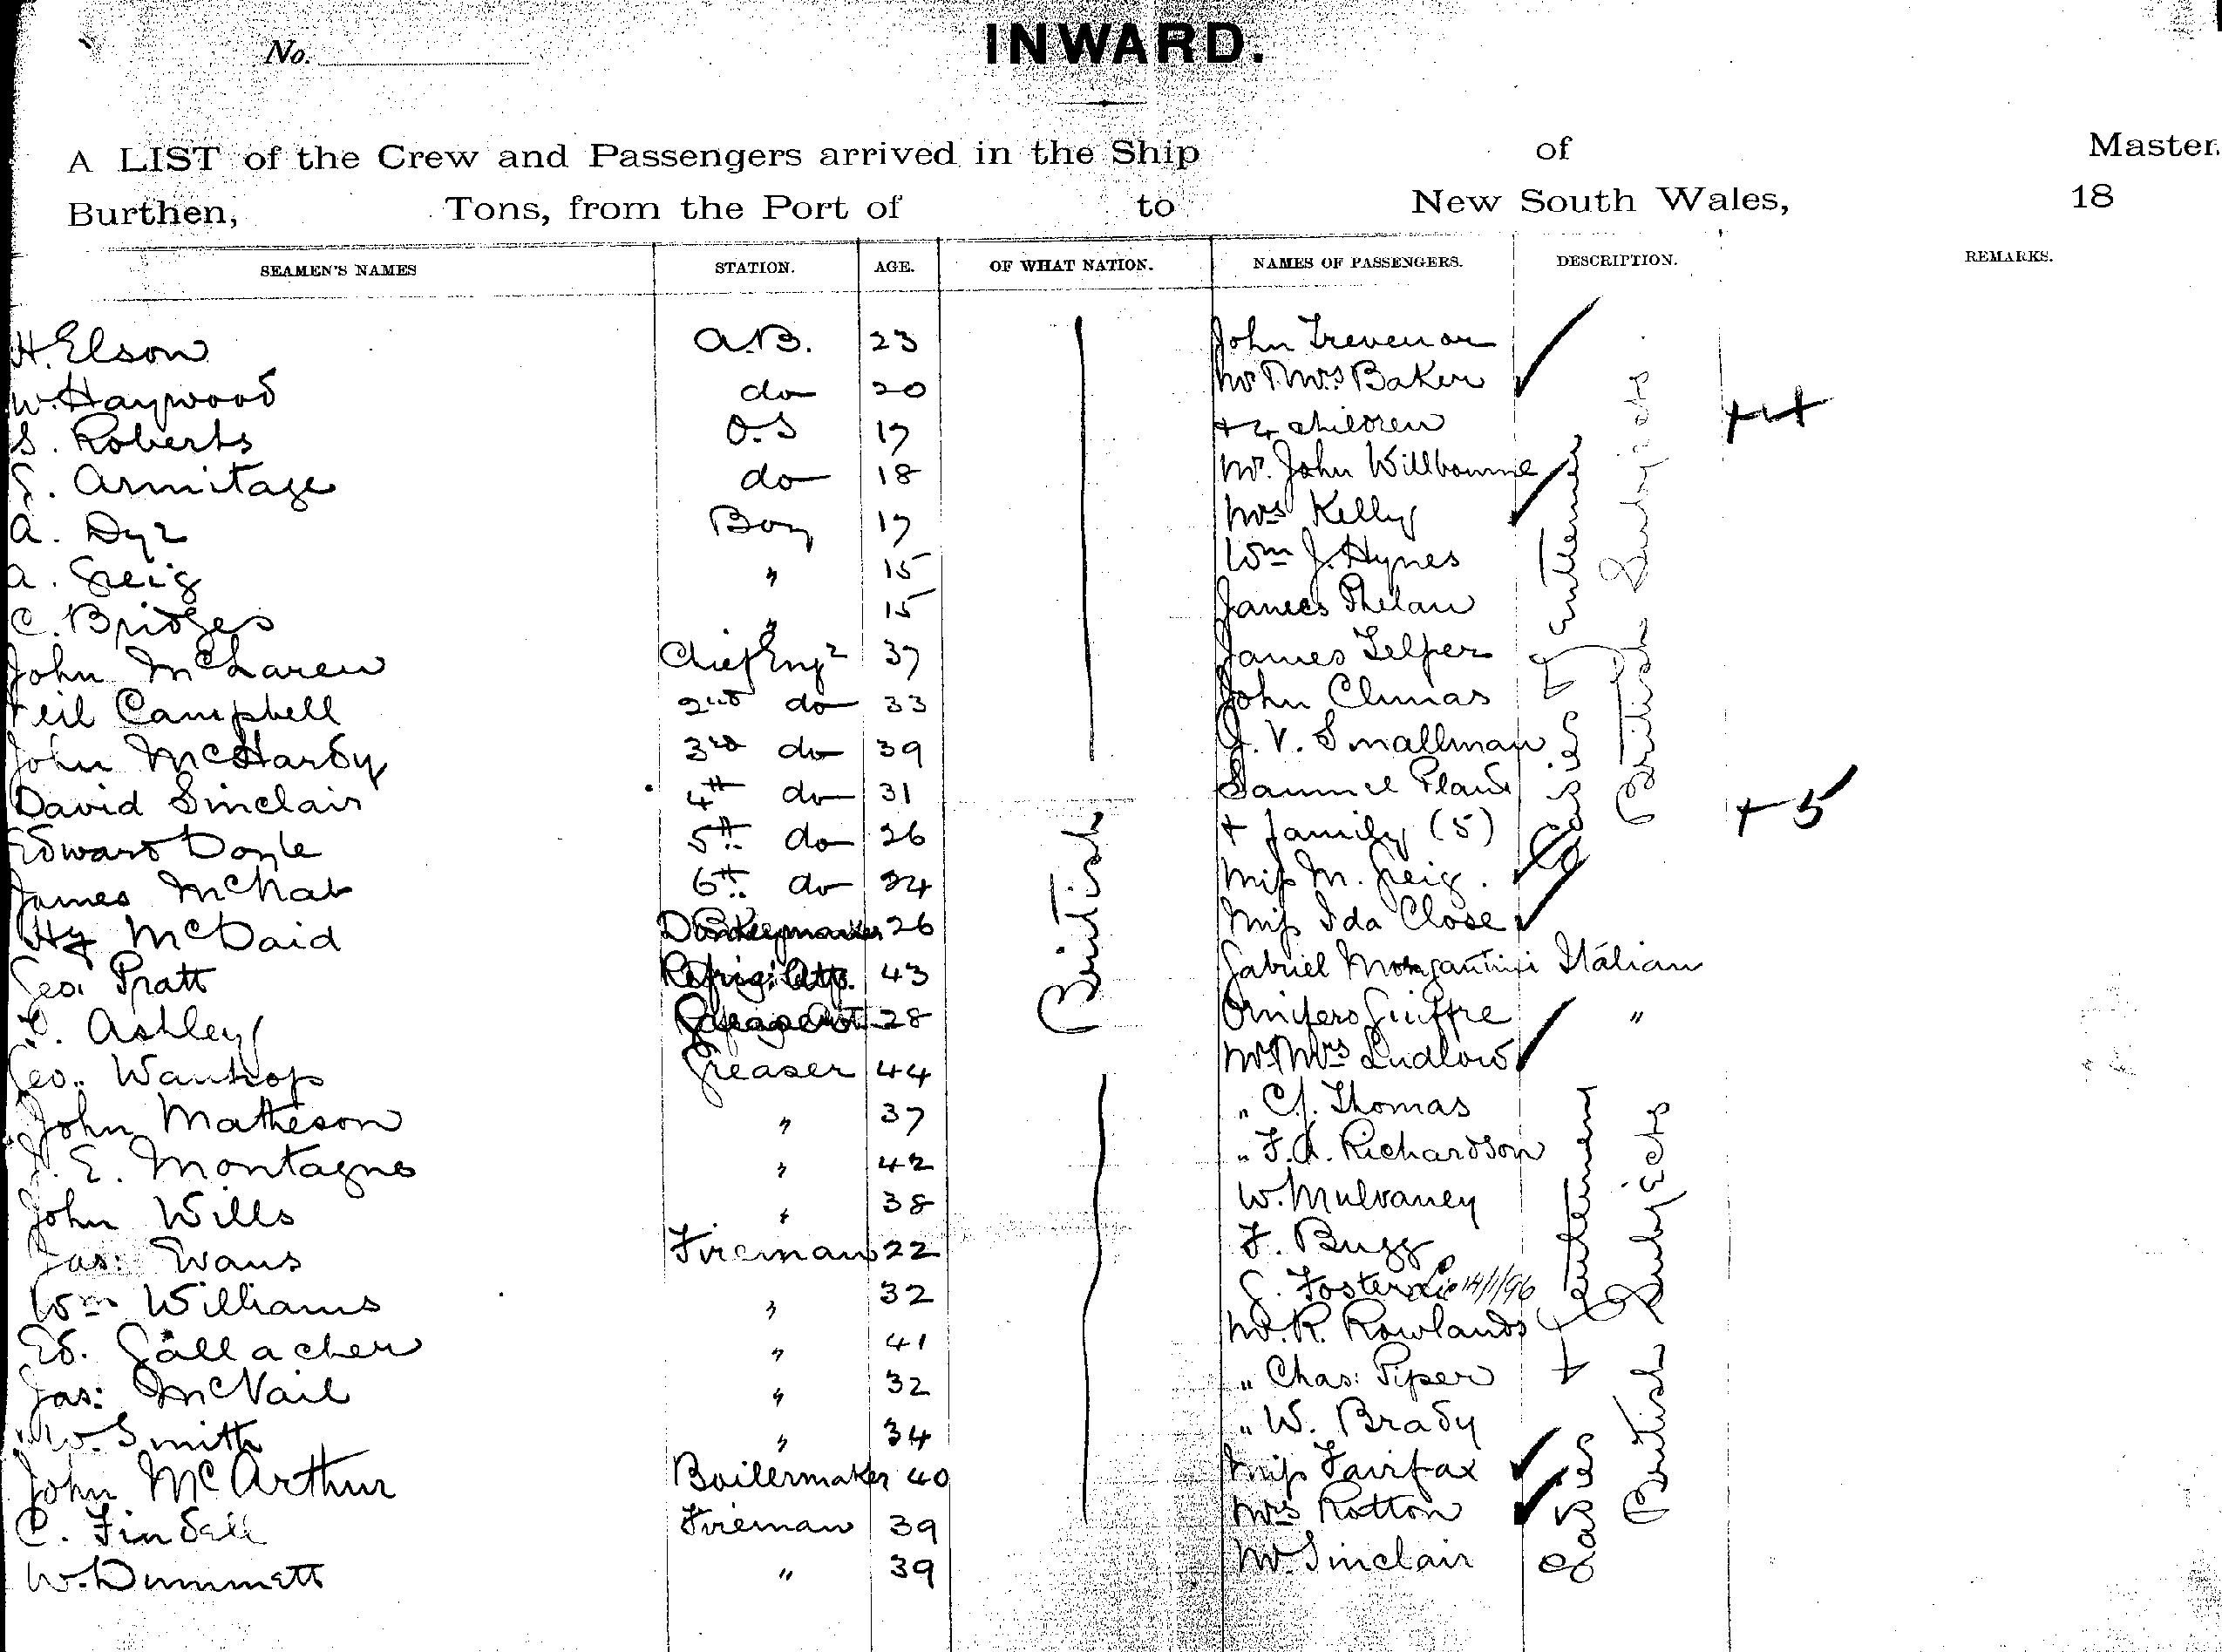 No.
INWARD.
A LIST of the Crew and Passengers arrived in the Ship of Master,
Burthen, Tons, from the Port of to New South Wales, 18
SEAMEN'S NAMES STATION. AGE. OF WHAT NATION. NAMES OF PASSENGERS. DESCRIPTION. REMARKS.
H. Elson A.B. 23 John Trevenar
W. Haywood do 20 Mr & Mrs Baker
S. Roberts O.S 17 + 4 children ++
Armitage do 18 Mr. John Willbourne
A. Dyr Boy 17 Mrs Kelly
A. Greig " 15 Wm J. Hynes
C. Bridges " 15 James Phelan
John McLaren Chief Engr 37 James Telfer
Neil Campbell 2nd do 33 John Climas
John McHardy 3rd do 39 J. V. Smallman
David Sinclair 4th do 31 Samuel Plant
Edward Doyle 5th do 26 + family (5) + 5
James McNab 6th do 24 Miss M. Greig.
Hy McDaid 26 Miss Ida Close
Geo. Pratt Refrig: 43 Gabriel Italian
Ashley 28 Giuffre "
Geo. Wauhop Greaser 44 Mr & Mrs Ludlow
John Matheson " 37 " C.J. Thomas
E. Montague " 42 " F.A. Richardson
John Wills " 38 W. Mulvaney
Jas: Evans Fireman 22 F. Bugg
Wm Williams " 32 Foster 14/1/96
Ed. Gallacher " 41 Mr. R. Rowlands
Jas: McNail " 32 " Chas: Piper
W. Smith " 34 " W. Brady
John McArthur Boilermaker 40 Miss Fairfax
C. Findell Fireman 39 Mrs Rotton
W. Dummett " 39 Mr. Sinclair
British
Ladies & Gentlemen
British Subjects
Ladies + Gentlemen
British Subjects